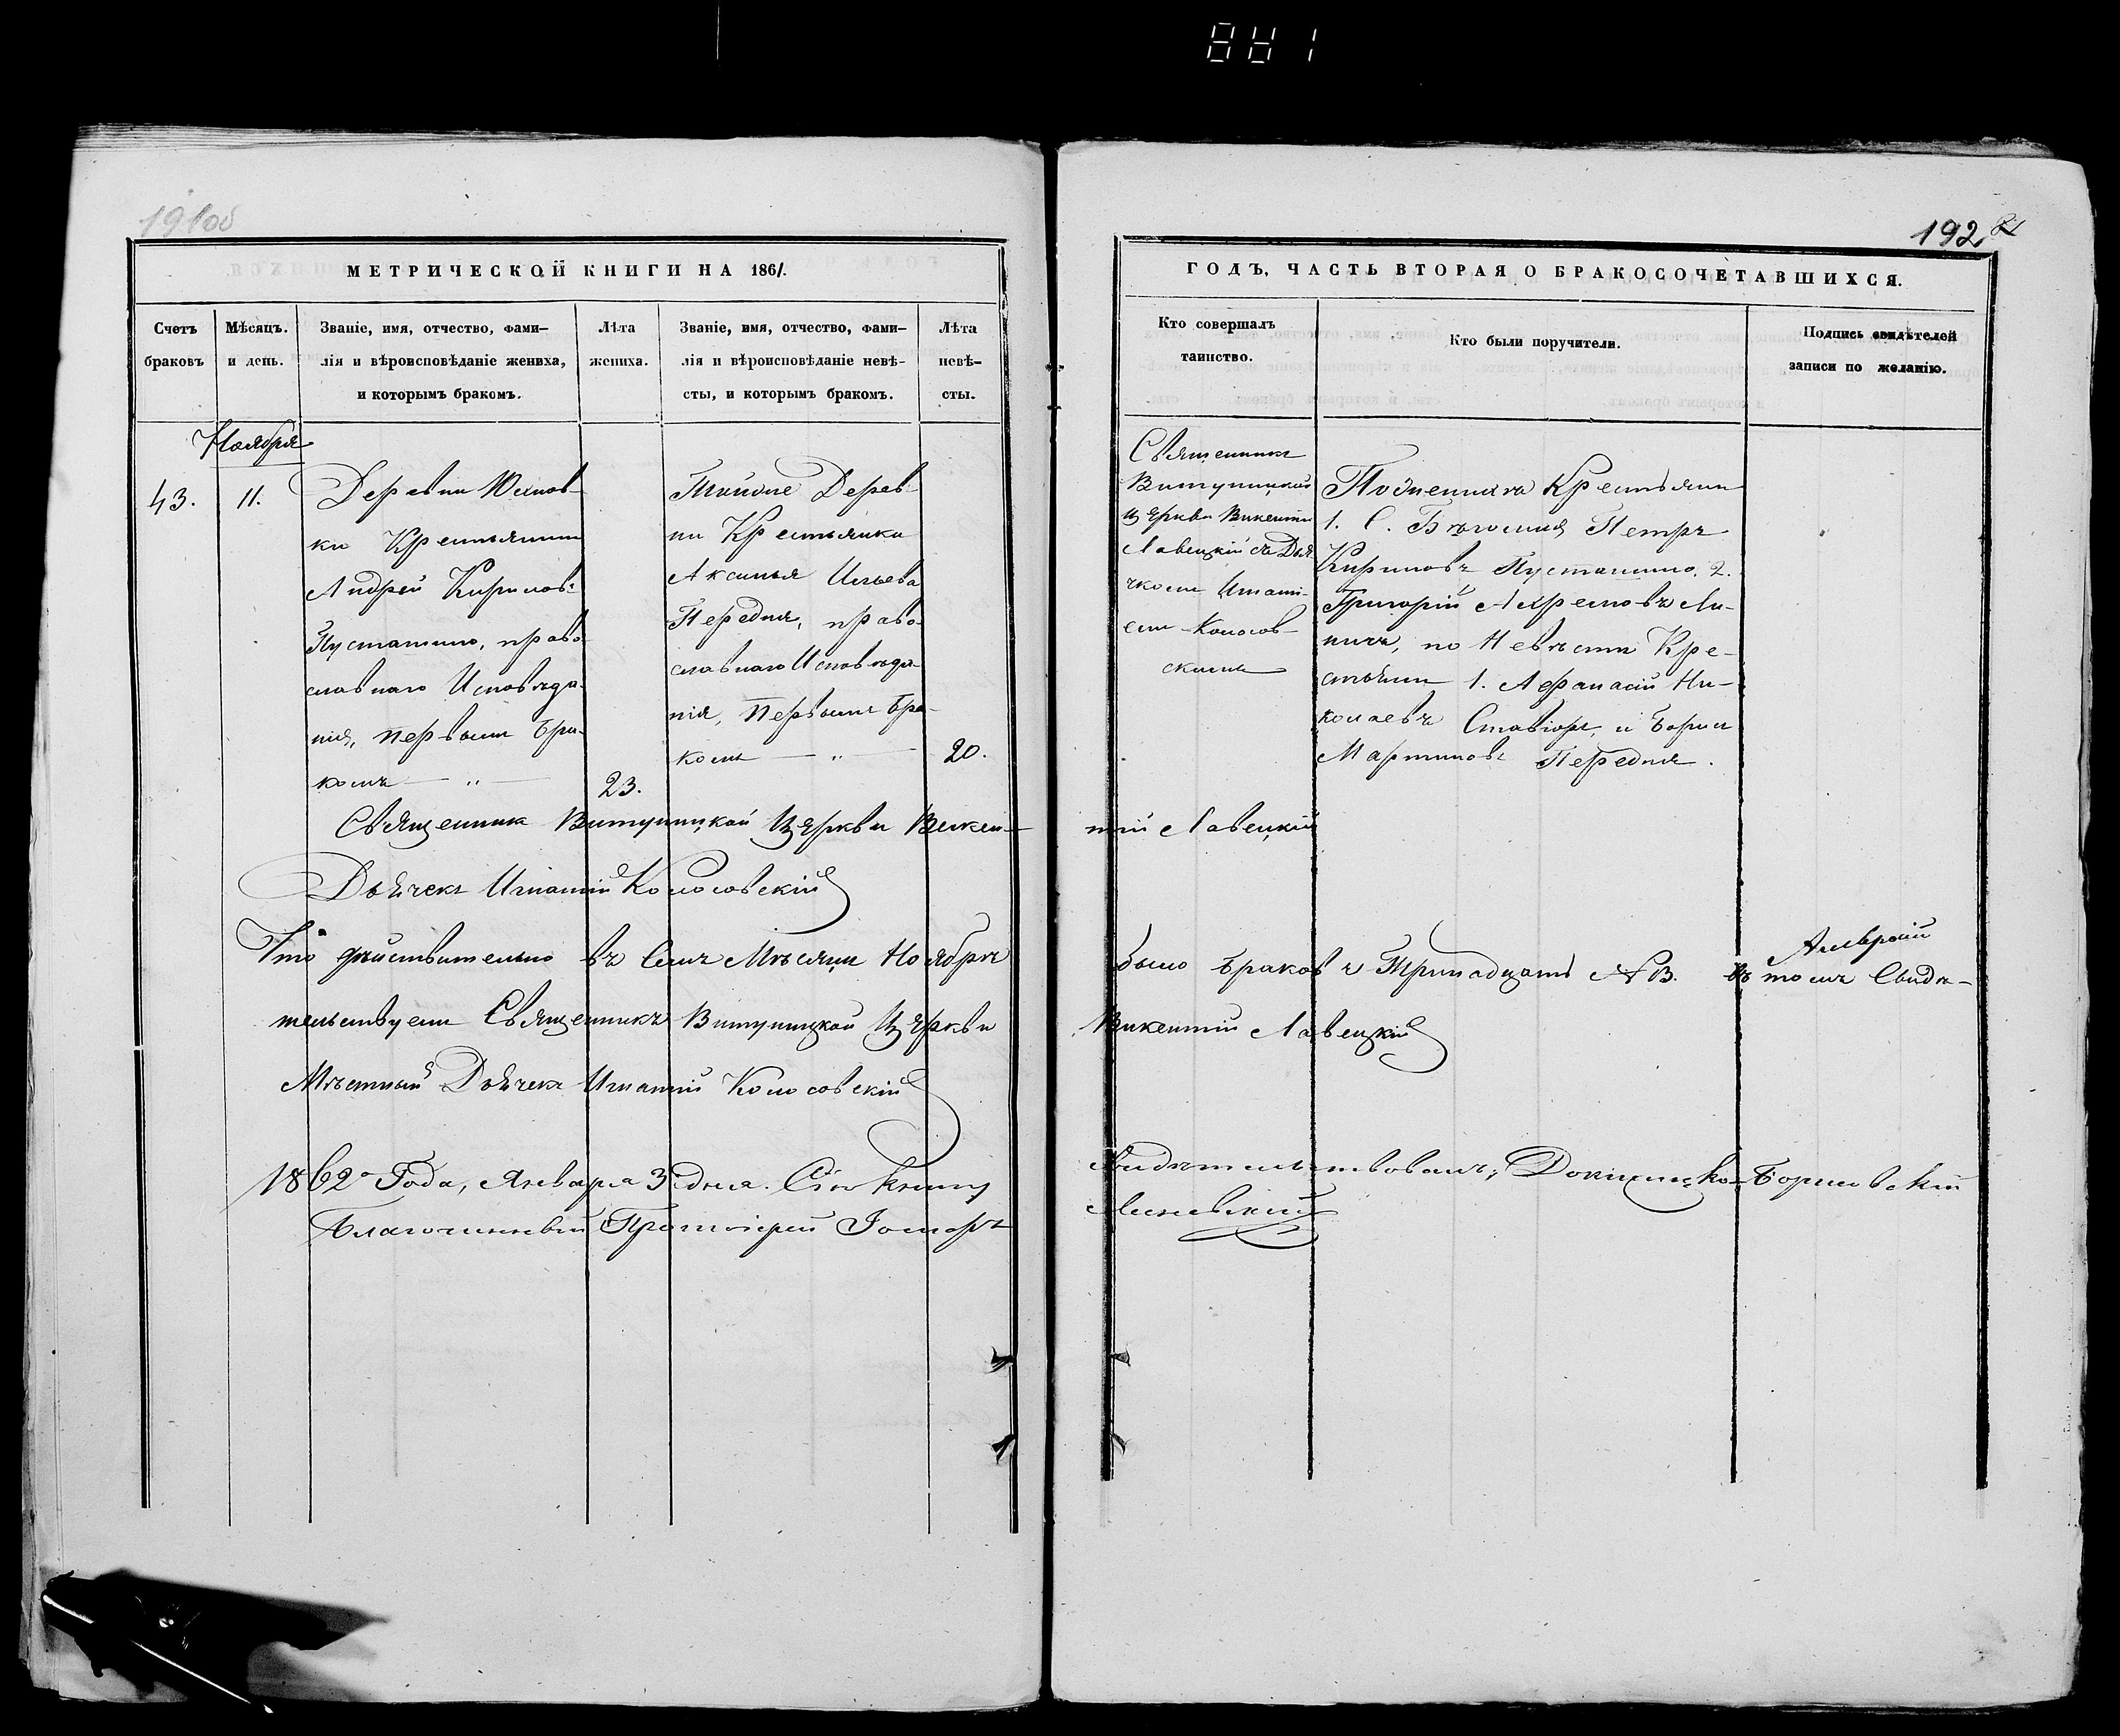 191об
192.
МЕТРИЧЕСКОЙ КНИГИ НА 1861.
ГОДЪ, ЧАСТЬ ВТОРАЯ О БРАКОСОЧЕТАВШИХСЯ.
Счетъ
браковъ
Мѣсяцъ.
и день.
Званіе, имя, отчество, фами–
лія и вѣроисповѣданіе жениха,
и которымъ бракомъ.
Лѣта
жениха.
Званіе, имя, отчество, фами–
лія и вѣроисповѣданіе невѣ–
сты, и которымъ бракомъ.
Лѣта
невѣ–
сты.
Кто совершалъ
таинство.
Кто были поручители.
Подпись свидѣтелей
записи по желанію.
Ноября
43.
11.
Деревни Юхнов-
ки Крестьянинъ
Андрей Кириловъ
Пусташно, право
славнаго Исповѣда-
нія, первымъ бра-
комъ — „ —
23.
Тойже Дерев-
ни Крестьянка
Аксинья Ильева
Передня, право-
славнаго Исповѣда-
нія, первымъ бра-
комъ — „ —
20.
Священникъ
Витуницкой
Церкви Викентій
Лавецкій съ Дья
чкомъ Игнаті-
емъ Колосов-
скимъ
По Женихѣ Крестьяни
1. С. Бѣгомля Петръ
Кириловъ Пусташно. 2.
Григорій
по Невѣсти Кре-
стьяни 1. Афанасій Ни-
колаевъ и Борисъ
Мартиновъ Передня.
Священникъ Витуницкой Церкви Викен-
тій Лавецкій
Дьячекъ Игнатій Колосовскій
Что дѣйствительно въ семъ Мѣсяцѣ Ноябрѣ
было браковъ Тринадцать № 13. въ томъ Свидѣ-
тельствуемъ Священникъ Витуницкой Церкви
Викентій Лавецкій
Мѣстный Дьячекъ Игнатій Колосовскій
1862 Года, Января 3 дня. Сію Книгу
Свидѣтельствовалъ, Докшицко-Борисовскій
Благочинный Протоіерей